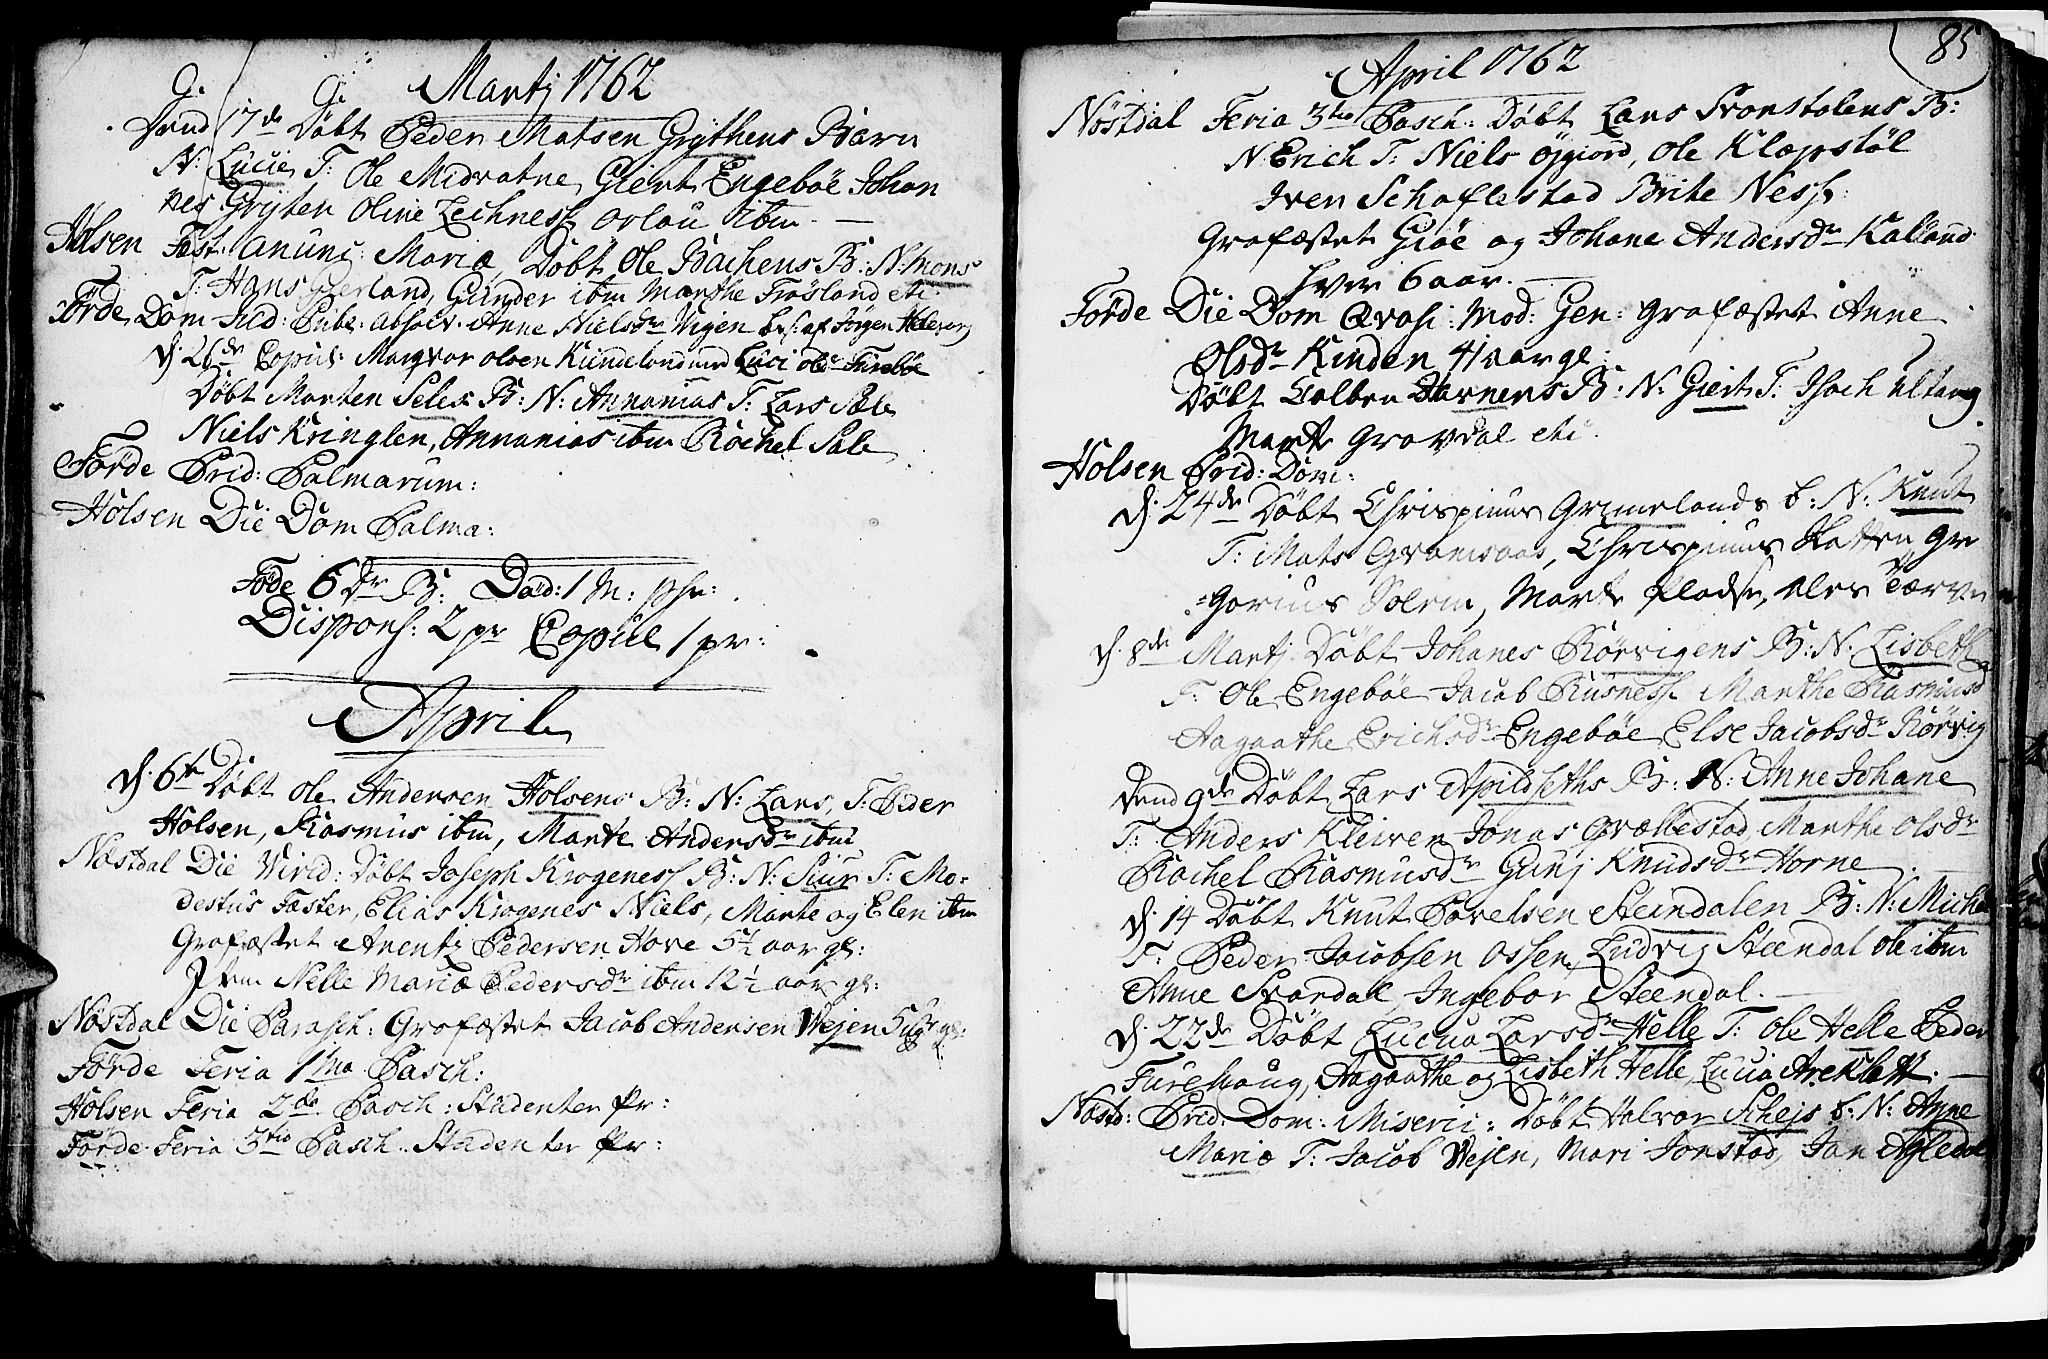 Martj 1762
Dend 17de Döbt Peder Matsen Grÿthens Barn
N: Lucie T: Ole Midvatne, Giert Engebøe Johan
nes Grÿten Oline Lechness Orlau ibm.
Holsen Fest: Anunc: Mariæ, Döbt Ole Bachens B: N: Mons
T: Hans Gierland, Gunder ibm Marthe Frösland etc.
Förde Dom Jud: Publ: absolv. Anne Nielsdr Vigen bes: af Jörgen
d: 26de Copul: Olsen og Luci Olsdr Furebøe
Döbt Morten Seles B: N: Annanias T: Lars Sæle
Niels Kringlen, Annanias ibm Rachel Sæle
Förde Prid: Palmarum:
Holsen Die Dom Palma:
Föde 6 dr B: Död: 1 M: psr:
Dispons: 2 pr Copul 1 pr:
April
d: 6te Döbt Ole Andersen Holsens B: N: Lars, T: Peder
Holsen, Rasmus ibm, Marte Andersdr ibm
Nöstdal Die Virid: Döbt Joseph Krogeness B: N: Siur T: Mo-
destus Fæster, Elias Krogenes Niels, Marte og Elen ibm
Grafæstet Arentz Pedersen Hove 5 1/2 aar gl:
Item Nelle Maria Pedersdr ibm 12 1/2 aar gl:
Nöstdal Die Parasch: Grafæstet Jacob Andersen Wejen 5 uger gl:
Förde Feria 1ma Pasch:
Holsen Feria 2da Pasch: Studenter Pr:
Förde Feria 3tia Pasch: Studenter Pr:
85
April 1762
Nöstdal Feria 3tia Pasch: Döbt Lars Svorstolens B:
N: Erich T: Niels Öÿgiord, Ole Klopstöl
Iver Schaflestad Brite Ness:
Grafæstet Giöe og Johane Andersdr Kalland
hver 6 aar.
Förde Die Dom Qvasi: Mod: Gen: Grafæstet Anne
Olsdr Kinden 41 aar gl:
Döbt Colben N: Giert T: Isach Altang
Marte Gravdal etc.
Holsen Prid: Dom:
d: 24de Döbt Chrispinus Grimelands b: N: Knut
T: Mats Gromsaas, Chrispinus Hatten Gre
=gorius Solem, Marte Pladsn, Ales Tærve
d: 8de Martj Döbt Johanes Rörvigens B: N: Lisbeth
T: Ole Engebøe Jacob Rusness Marthe Rasmusd
Aagaathe Erichsdr Engebøe Else Jacobsdr Rörvig
Dend 9de Döbt Lars Apildseths B: N: Anne Johane
T: Anders Kleiven Jonas Qvællestad Marthe Olsdr
Rachel Rasmusdr Gunj Knudsdr Horne
d: 14 Döbt Knut Povelsen Steindalen B: N: Miche
T: Peder Jacobsen Ossen, Ludvig Steendal Ole ibm
Anne Svardal, Ingebor Steendal.
d: 22de Döbt Lucua Larsdr Helle T: Ole Helle Peder
Furehaug, Aagaathe og Lisbeth Helle, Lucia Areklett.
Nöstd: Prid: Dom: Miseric: Döbt Halvor Schejs b: N: Anne
Maria T: Jacob Wejen, Mari Jonstad, Jan